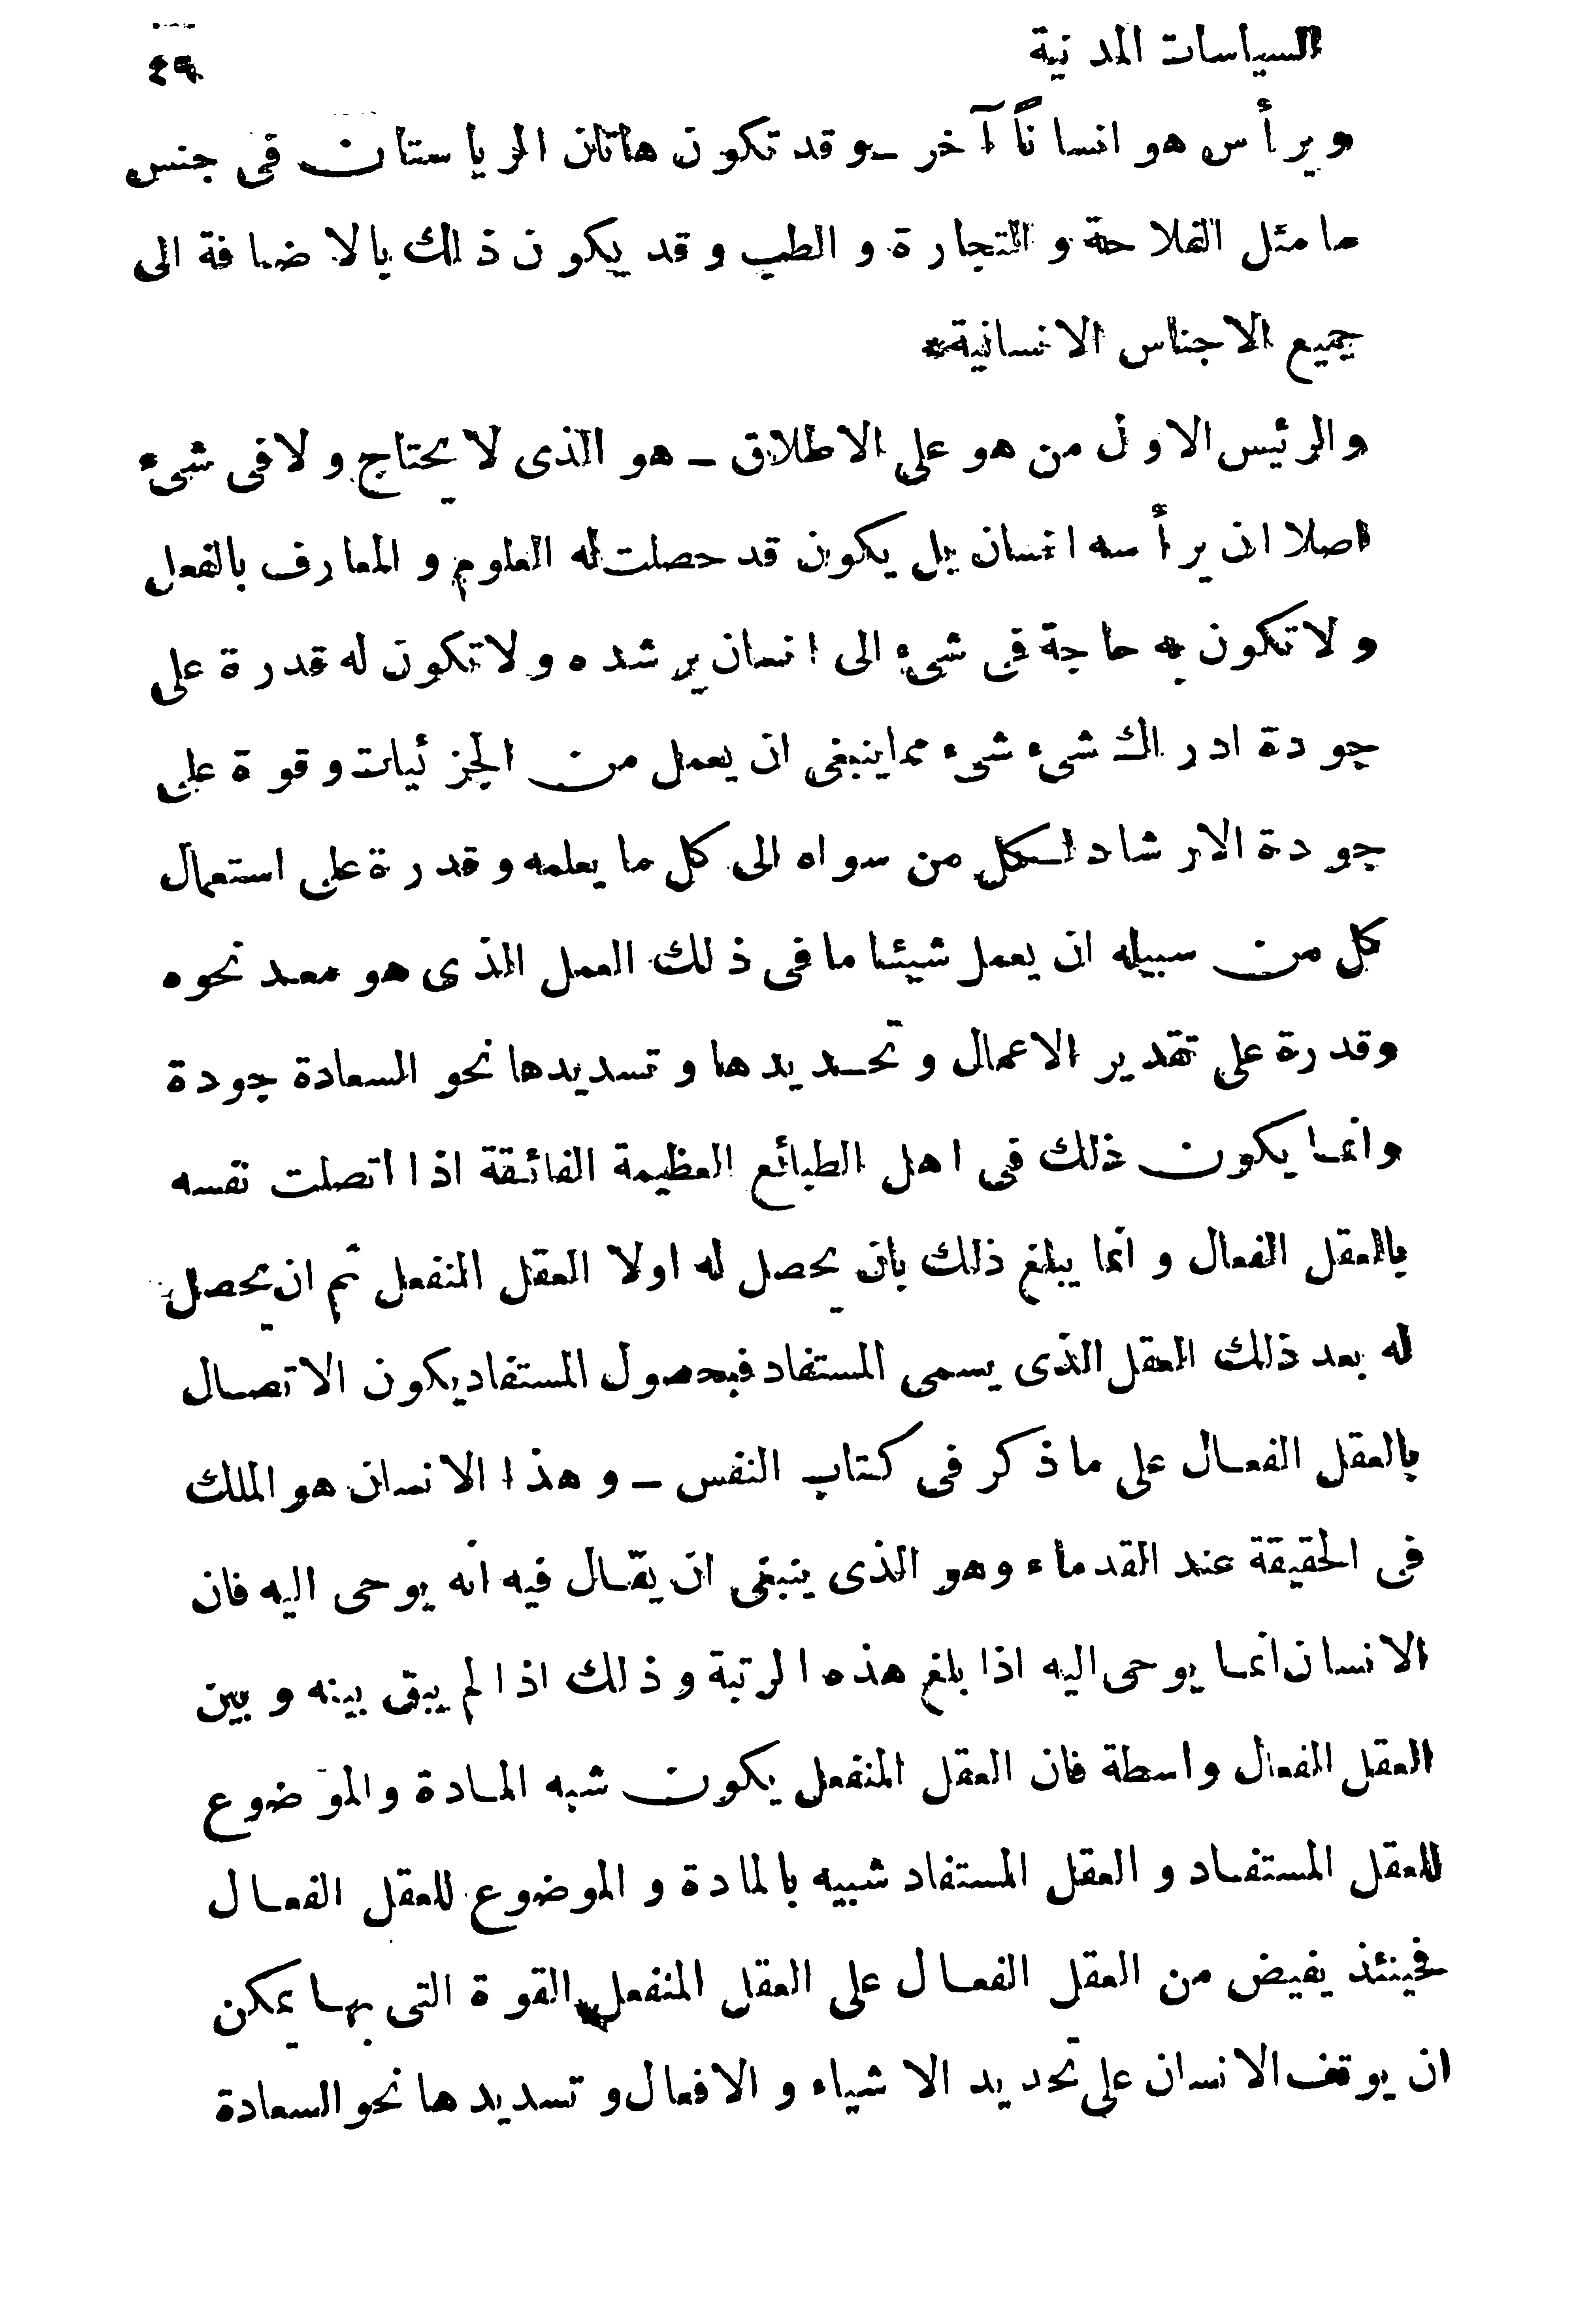 السياسات المدنية
٤٩
ويرأس هو انساناً آخر ـ وقد تكون هاتان الرياستان فى جنس
ما مثل الفلاحة والتجارة والطب وقد يكون ذلك بالاضافة الى
جميع الاجناس الانسانية*
والرئيس الاول من هو على الاطلاق ـ هو الذى لا يحتاج ولا فى شىء
اصلا ان يرأسه انسان بل يكون قد حصلت له العلوم والمعارف بالفعل
ولا تكون به حاجة فى شىء الى انسان يرشده ولا تكون له قدرة على
جودة ادراك شىء شىء مما ينبغى ان يعمل من الجزئيات وقوة على
جودة الارشاد لكل من سواه الى كل ما يعلمه وقدرة على استعمال
كل من سبيله ان يعمل شيئا ما فى ذلك العمل الذى هو معد نحوه
وقدرة على تقدير الاعمال وتحديدها وتسديدها نحو السعادة جودة
وانما يكون ذلك فى اهل الطبائع العظيمة الفائقة اذا اتصلت نفسه
بالعقل الفعال وانما يبلغ ذلك بان يحصل له اولا العقل المنفعل ثم ان يحصل
له بعد ذلك العقل الذى يسمى المستفاد فبحصول المستفاد يكون الاتصال
بالعقل الفعال على ما ذكر فى كتاب النفس ـ وهذا الانسان هو الملك
فى الحقيقة عند القدماء وهو الذى ينبغى ان يقال فيه انه يوحى اليه فان
الانسان انما يوحى اليه اذا بلغ هذه الرتبة وذلك اذا لم يبق بينه وبين
العقل الفعال واسطة فان العقل المنفعل يكون شبه المادة والموضوع
للعقل المستفاد والعقل المستفاد شبيه بالمادة والموضوع للعقل الفعال
فحينئذ يفيض من العقل الفعال على العقل المنفعل القوة التى بها يمكن
ان يوقف الانسان على تحديد الاشياء والافعال وتسديدها نحو السعادة